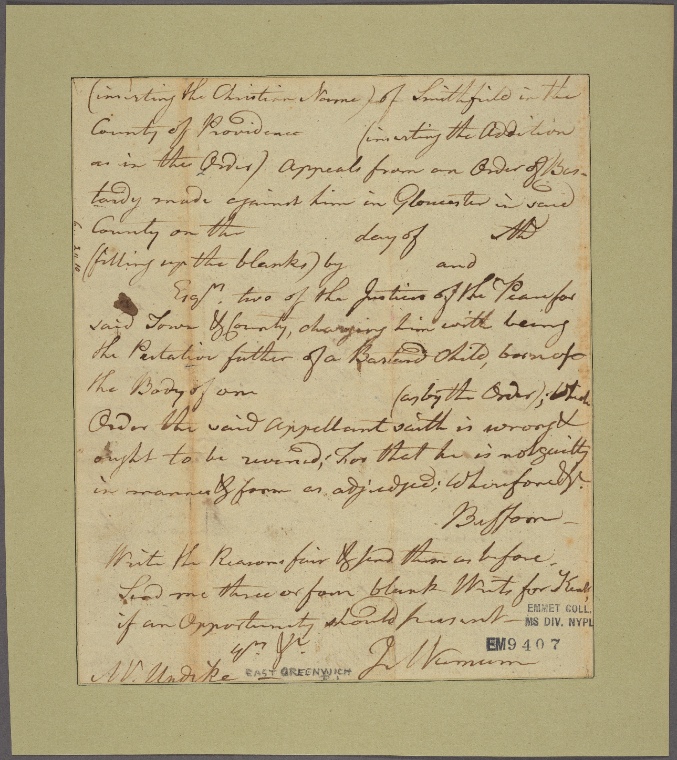 (inserting the Christian Name) of Smithfield in the
County of Providence (inserting the Addition
as in the Order) Appeals from an Order of Bas-
tardy made against him in Gloucester in said
County on the day of
(filling up the blanks) by and
Esqrs. two of the Justices of the Peace for
said Town & County, charging him with being
the Putative father of a Bastard Child, born of
the Body of one (as by the Order); Which
Order the said Appellant saith is wrong &
ought to be reversed; For that he is not guilty
in manner & form as adjudged; Wherefore &c.
Write the Reasons fair & send them as before.
Send me three or four blank Writs for Kent
if an Opportunity should present—
Yrs. &c.
J Varnum
Updike
EAST GREENWICH
EMMET COLL.
MS DIV. NYPL
EM9407